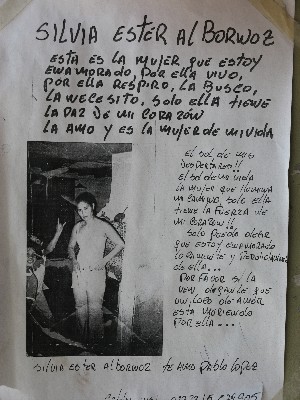 SILVIA ESTER ALBORNOZ
ESTA ES LA MUJER QUE ESTOY
ENAMORADO, POR ELLA VIVO,
POR ELLA RESPIRO, LA BUSCO,
LA NECESITO, SOLO ELLA TIENE
LA PAZ DE MI CORAZÓN
LA AMO Y ES LA MUJER DE MI VIDA
EL SOL DE MIS
DESPERTARES!!
EL SOL DE MI VIDA
LA MUJER QUE ILUMINA
MI CAMINO, SOLO ELLA
TIENE LA FUERZA DE
MI CORAZÓN!!
SOLO PUEDO DECIR
QUE ESTOY ENAMORADO
LOCAMENTE Y PERDIDAMENTE
DE ELLA...
POR FAVOR SI LA
VEN, DIGANLE QUE
UN LOCO DE AMOR
ESTA MURIENDO
POR ELLA...
SILVIA ESTER ALBORNOZ TE AMO PABLO LOPEZ